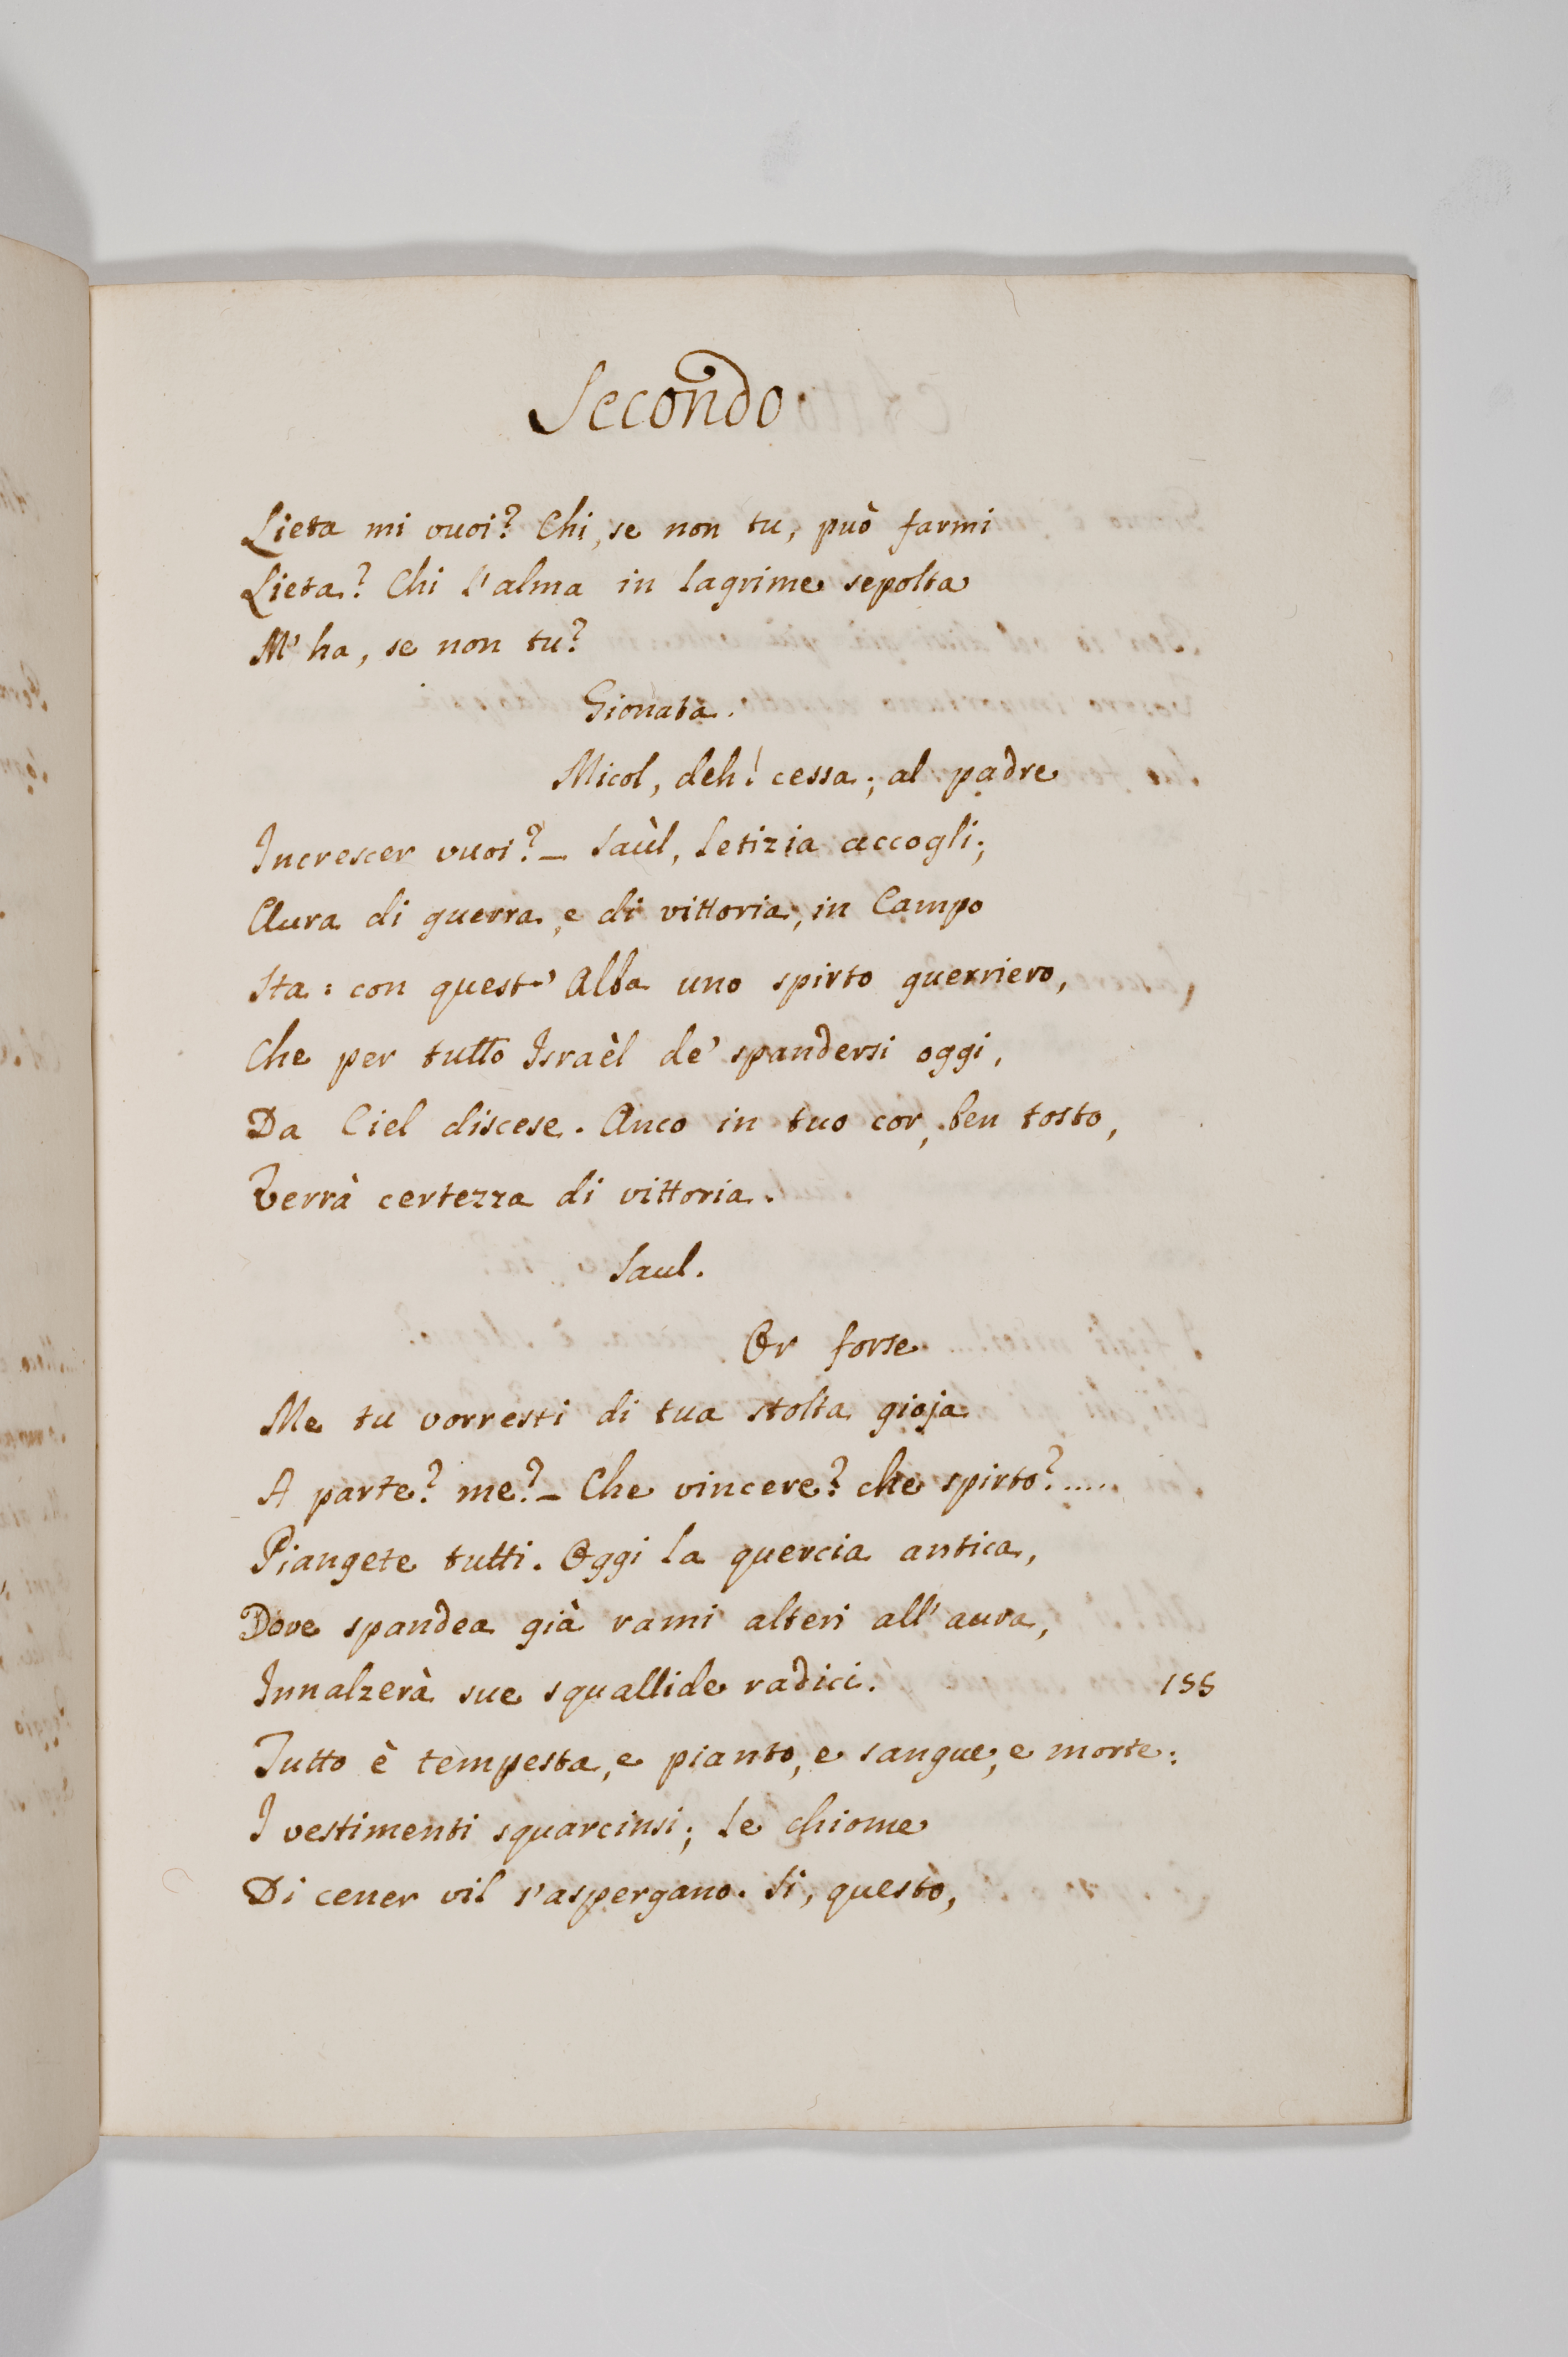 Secondo
Lieta mi vuoi? Chi, se non tu, può farmi
Lieta? Chi l'alma in lagrime sepolta
M'ha, se non tu?
Gionata.
Micol, deh! cessa; al padre
Increscer vuoi?_ Saùl, letizia accogli;
Aura di guerra, e di vittoria, in Campo
Sta: con quest'Alba uno spirto guerriero,
Che per tutto Israèl de' spandersi oggi,
Da Ciel discese. Anco in tuo cor, ben tosto,
Verrà certezza di vittoria.
Saul.
Or forse
Me tu vorresti di tua stolta gioja
A parte? me?_ Che vincere? che spirto?.....
Piangete tutti. Oggi la quercia antica,
Dove spandea già rami alteri all'aura,
Innalzerà sue squallide radici. 155
Tutto è tempesta, e pianto, e sangue, e morte:
I vestimenti squarcinsi; le chiome
Di cener vil s'aspergano. Si, questo,